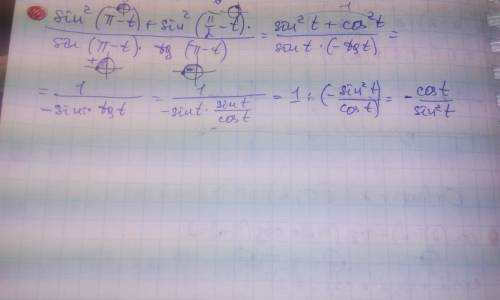 sin² (π-t) + sin² (π/2 - t) / sin (π-t) · tg (π-t) = sin² t + cos² t / sin t · (-tg t) =
= 1 / -sin t · tg t = 1 / -sin t · sin t / cos t = 1 : (- sin² t / cos t) = - cos t / sin² t